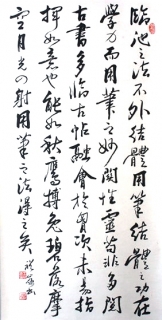 臨池之法不外結體用筆結體之功在
學力而用筆之妙關性靈苟非多閱
古書多臨古帖融會於胸次未易指
揮如意也能如秋鷹搏兔碧落摩
空目光四射用筆之法得之矣